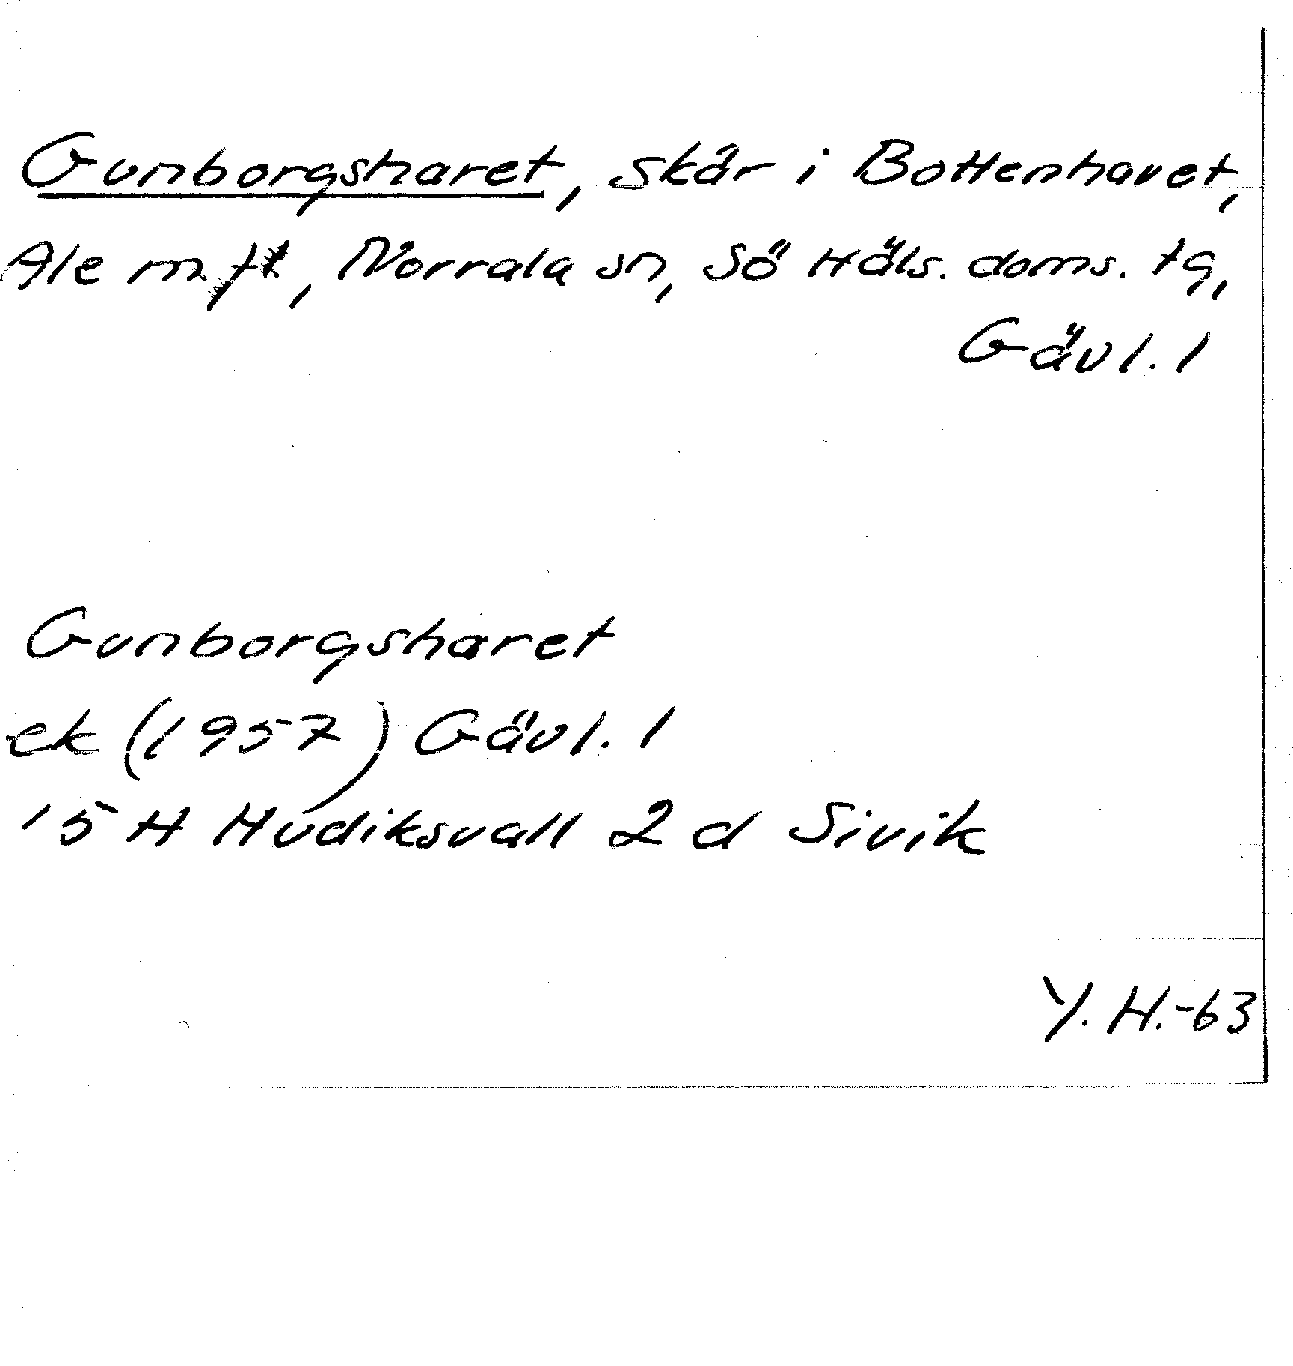 Gunborgsharet, skär i Bottenhavet,
Ale m fl, Norrala sn, Sö Häls. doms. tg,
Gävl. l
Gunborgsharet
ek (1957) Gävl. l
15 H Hudiksvall 2 d Sivik
Y. H.-63